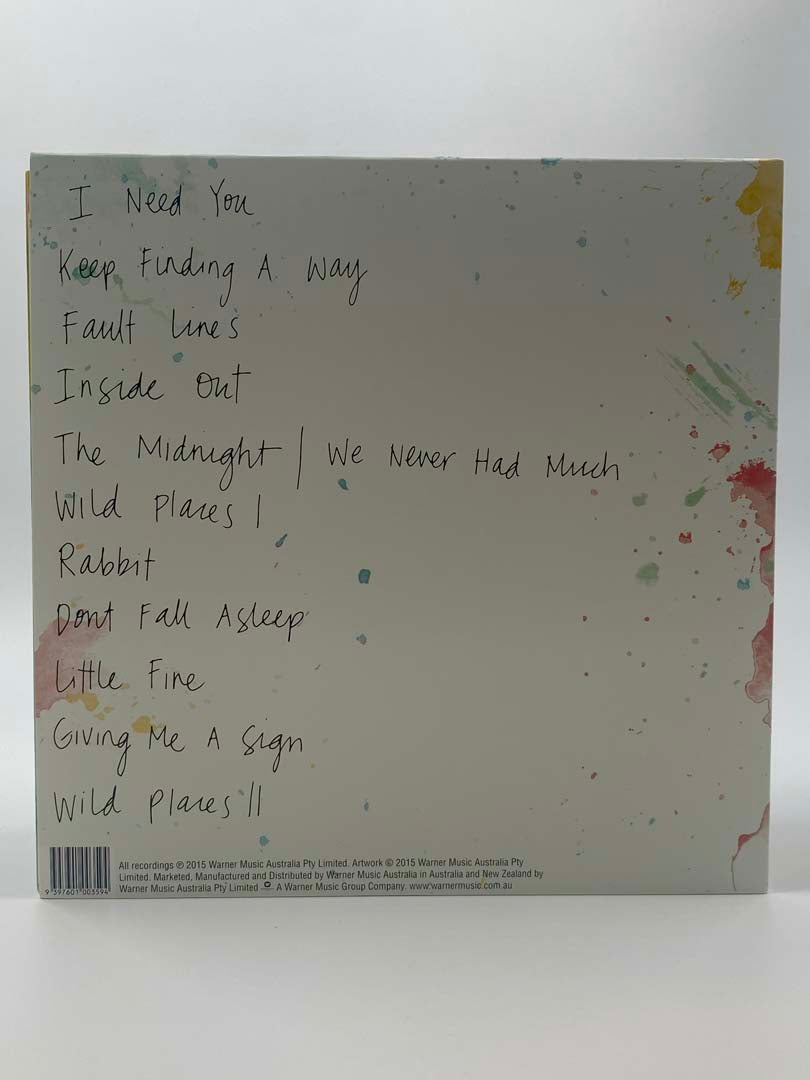 I Need You
Keep Finding A Way
Fault Lines
Inside Out
The Midnight | We Never Had Much
Wild Places I
Rabbit
Dont Fall Asleep
Little Fine
Giving Me A Sign
Wild Places II
All recordings ℗ 2015 Warner Music Australia Pty Limited. Artwork © 2015 Warner Music Australia Pty
Limited. Marketed, Manufactured and Distributed by Warner Music Australia in Australia and New Zealand by
Warner Music Australia Pty Limited A Warner Music Group Company. www.warnermusic.com.au
9 397601 003594